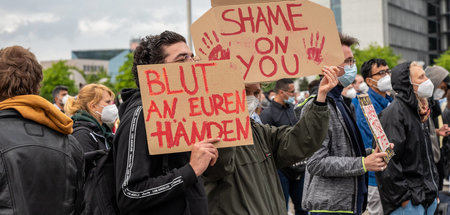 SHAME
ON
YOU
BLUT
AN EUREN
HÄNDEN